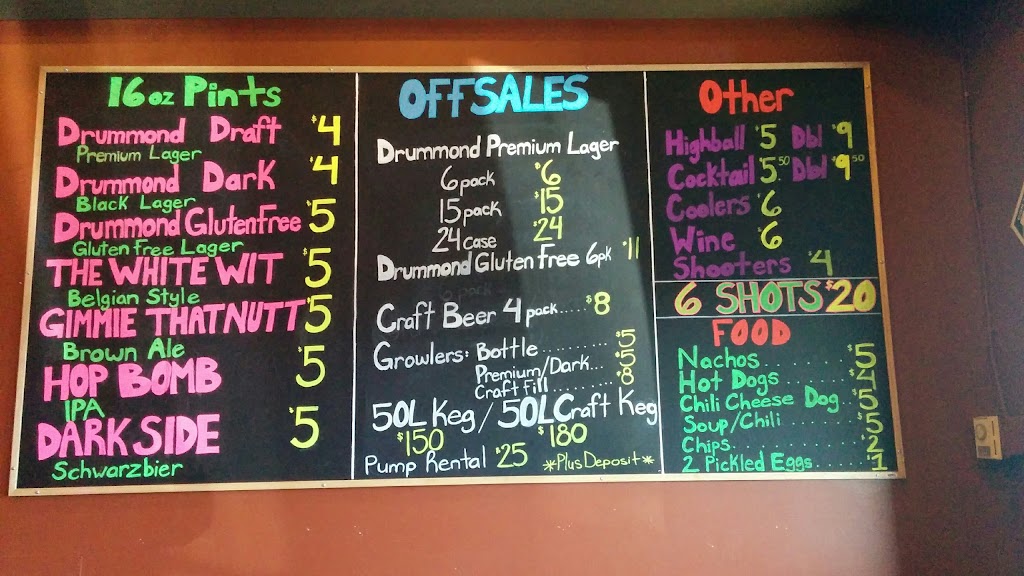 16oz Pints
Drummond Draft $4
Premium Lager
Drummond Dark $4
Black Lager
Drummond Gluten Free $5
Gluten free Lager
THE WHITE WIT $5
Belgian Style
GIMMIE THAT NUTT $5
Brown Ale
HOP BOMB $5
IPA
DARK SIDE $5
Schwarzbier
OFFSALES
Drummond Premium Lager
6 pack $6
15 pack $15
24 case $24
Drummond Gluten Free 6pk $11
Craft Beer 4 pack..... $8
Growlers: Bottle .......... $5
Premium/Dark... $5
Craft fill ........ $8
50L Keg / 50L Craft Keg
$150 $180
Pump Rental $25 *Plus Deposit*
Other
Highball $5 Dbl $9
Cocktail $5.50 Dbl $9.50
Coolers $6
Wine $6
Shooters $4
6 SHOTS $20
FOOD
Nachos ........... $5
Hot Dogs ......... $4
Chili Cheese Dog .. $5
Soup/Chili ........ $5
Chips ............. $2
2 Pickled Eggs ..... $1